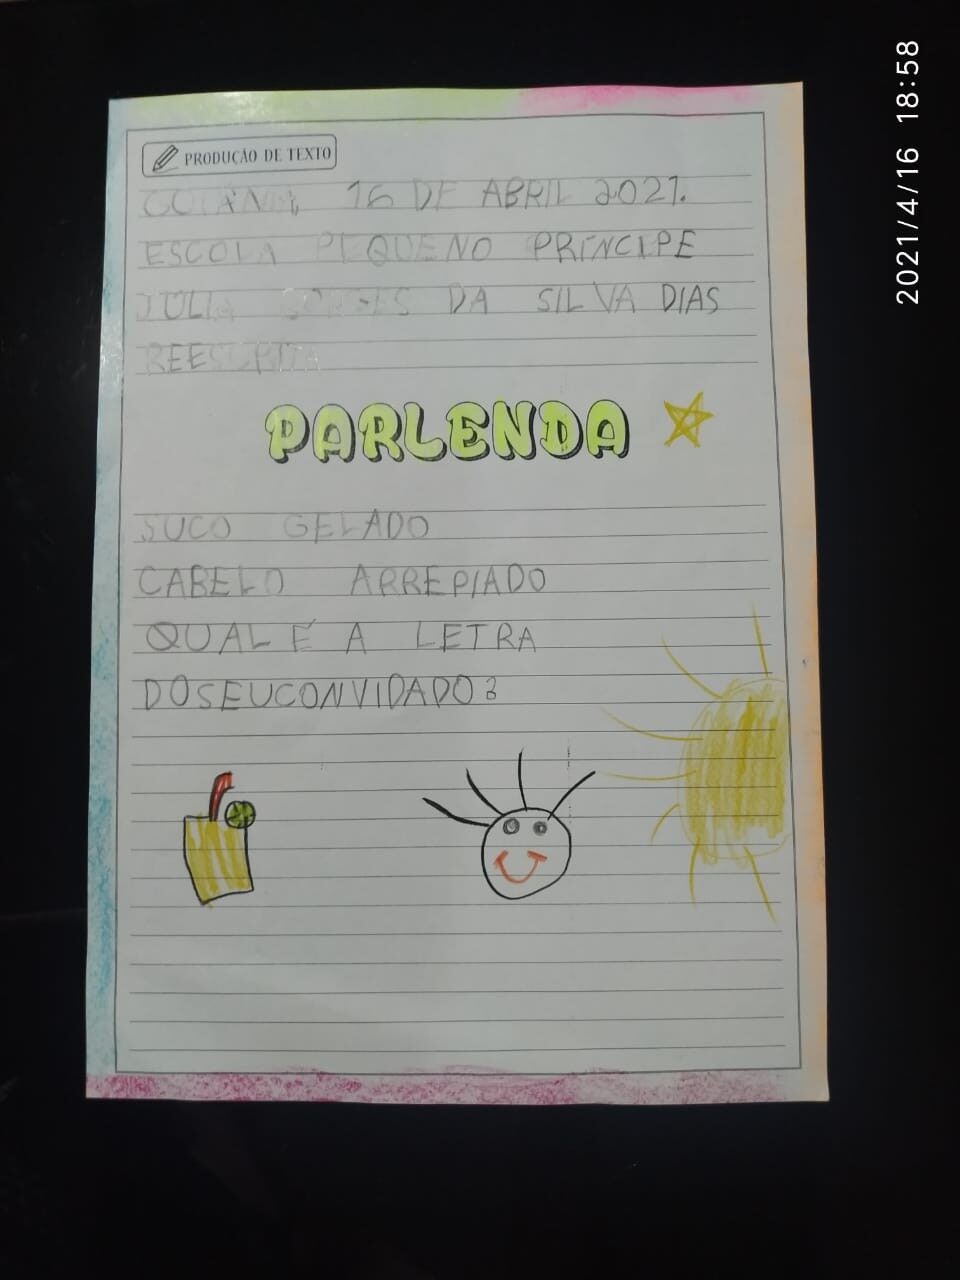 2021/4/16 18:58
PRODUÇÃO DE TEXTO
GOIÂNIA, 16 DE ABRIL 2021.
ESCOLA PEQUENO PRÍNCIPE
JÚLIA DA SILVA DIAS
REESCRITA
PARLENDA
SUCO GELADO
CABELO ARREPIADO
QUAL É A LETRA
DOSEUCONVIDADO?